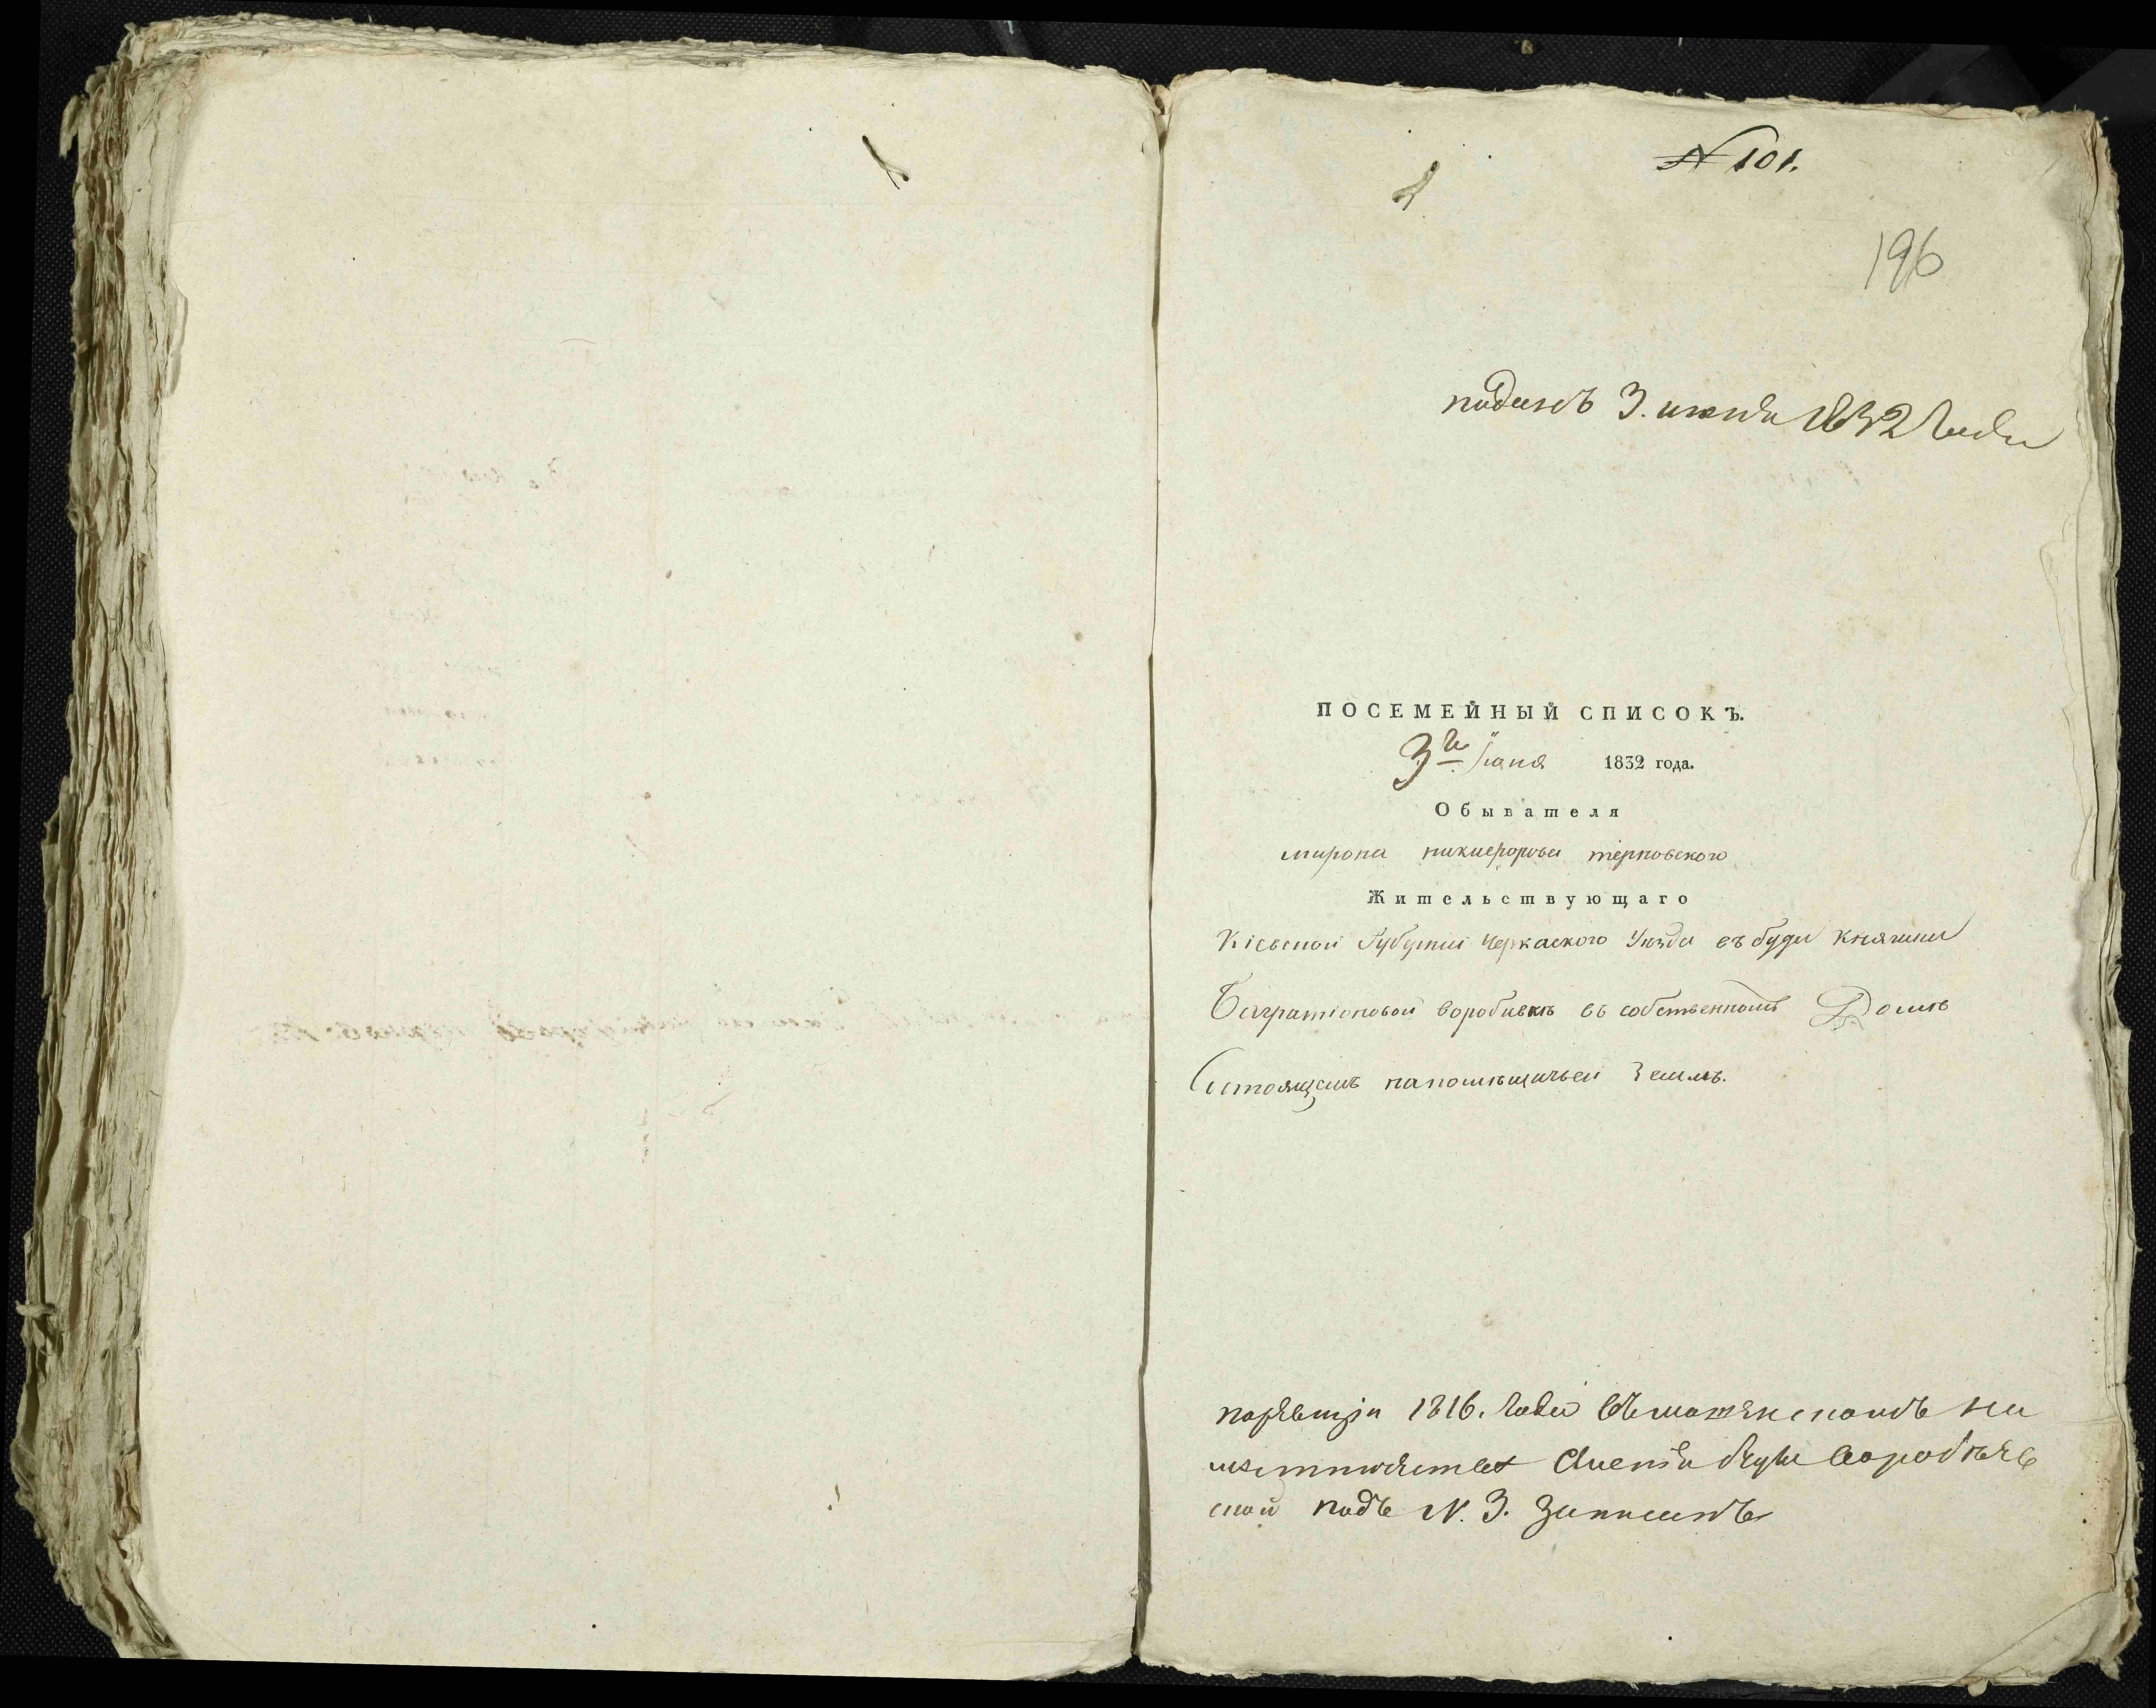 N 101.
196
поданъ 3. июня 1832 года
ПОСЕМЕЙНЫЙ СПИСОКЪ.
3го Iюня 1832 года.
Обывателя
мирона никифорова терновского
Жительствующаго
Кіевской Губерніи Черкаского Уезда въ буди княгини
Багратіоновой воробиевкѣ въ собственномъ Домѣ
Состоящемъ напомѣщичьей Землѣ.
поревизіи 1816. года
буды воробіев
ской подъ N. 3. записанъ